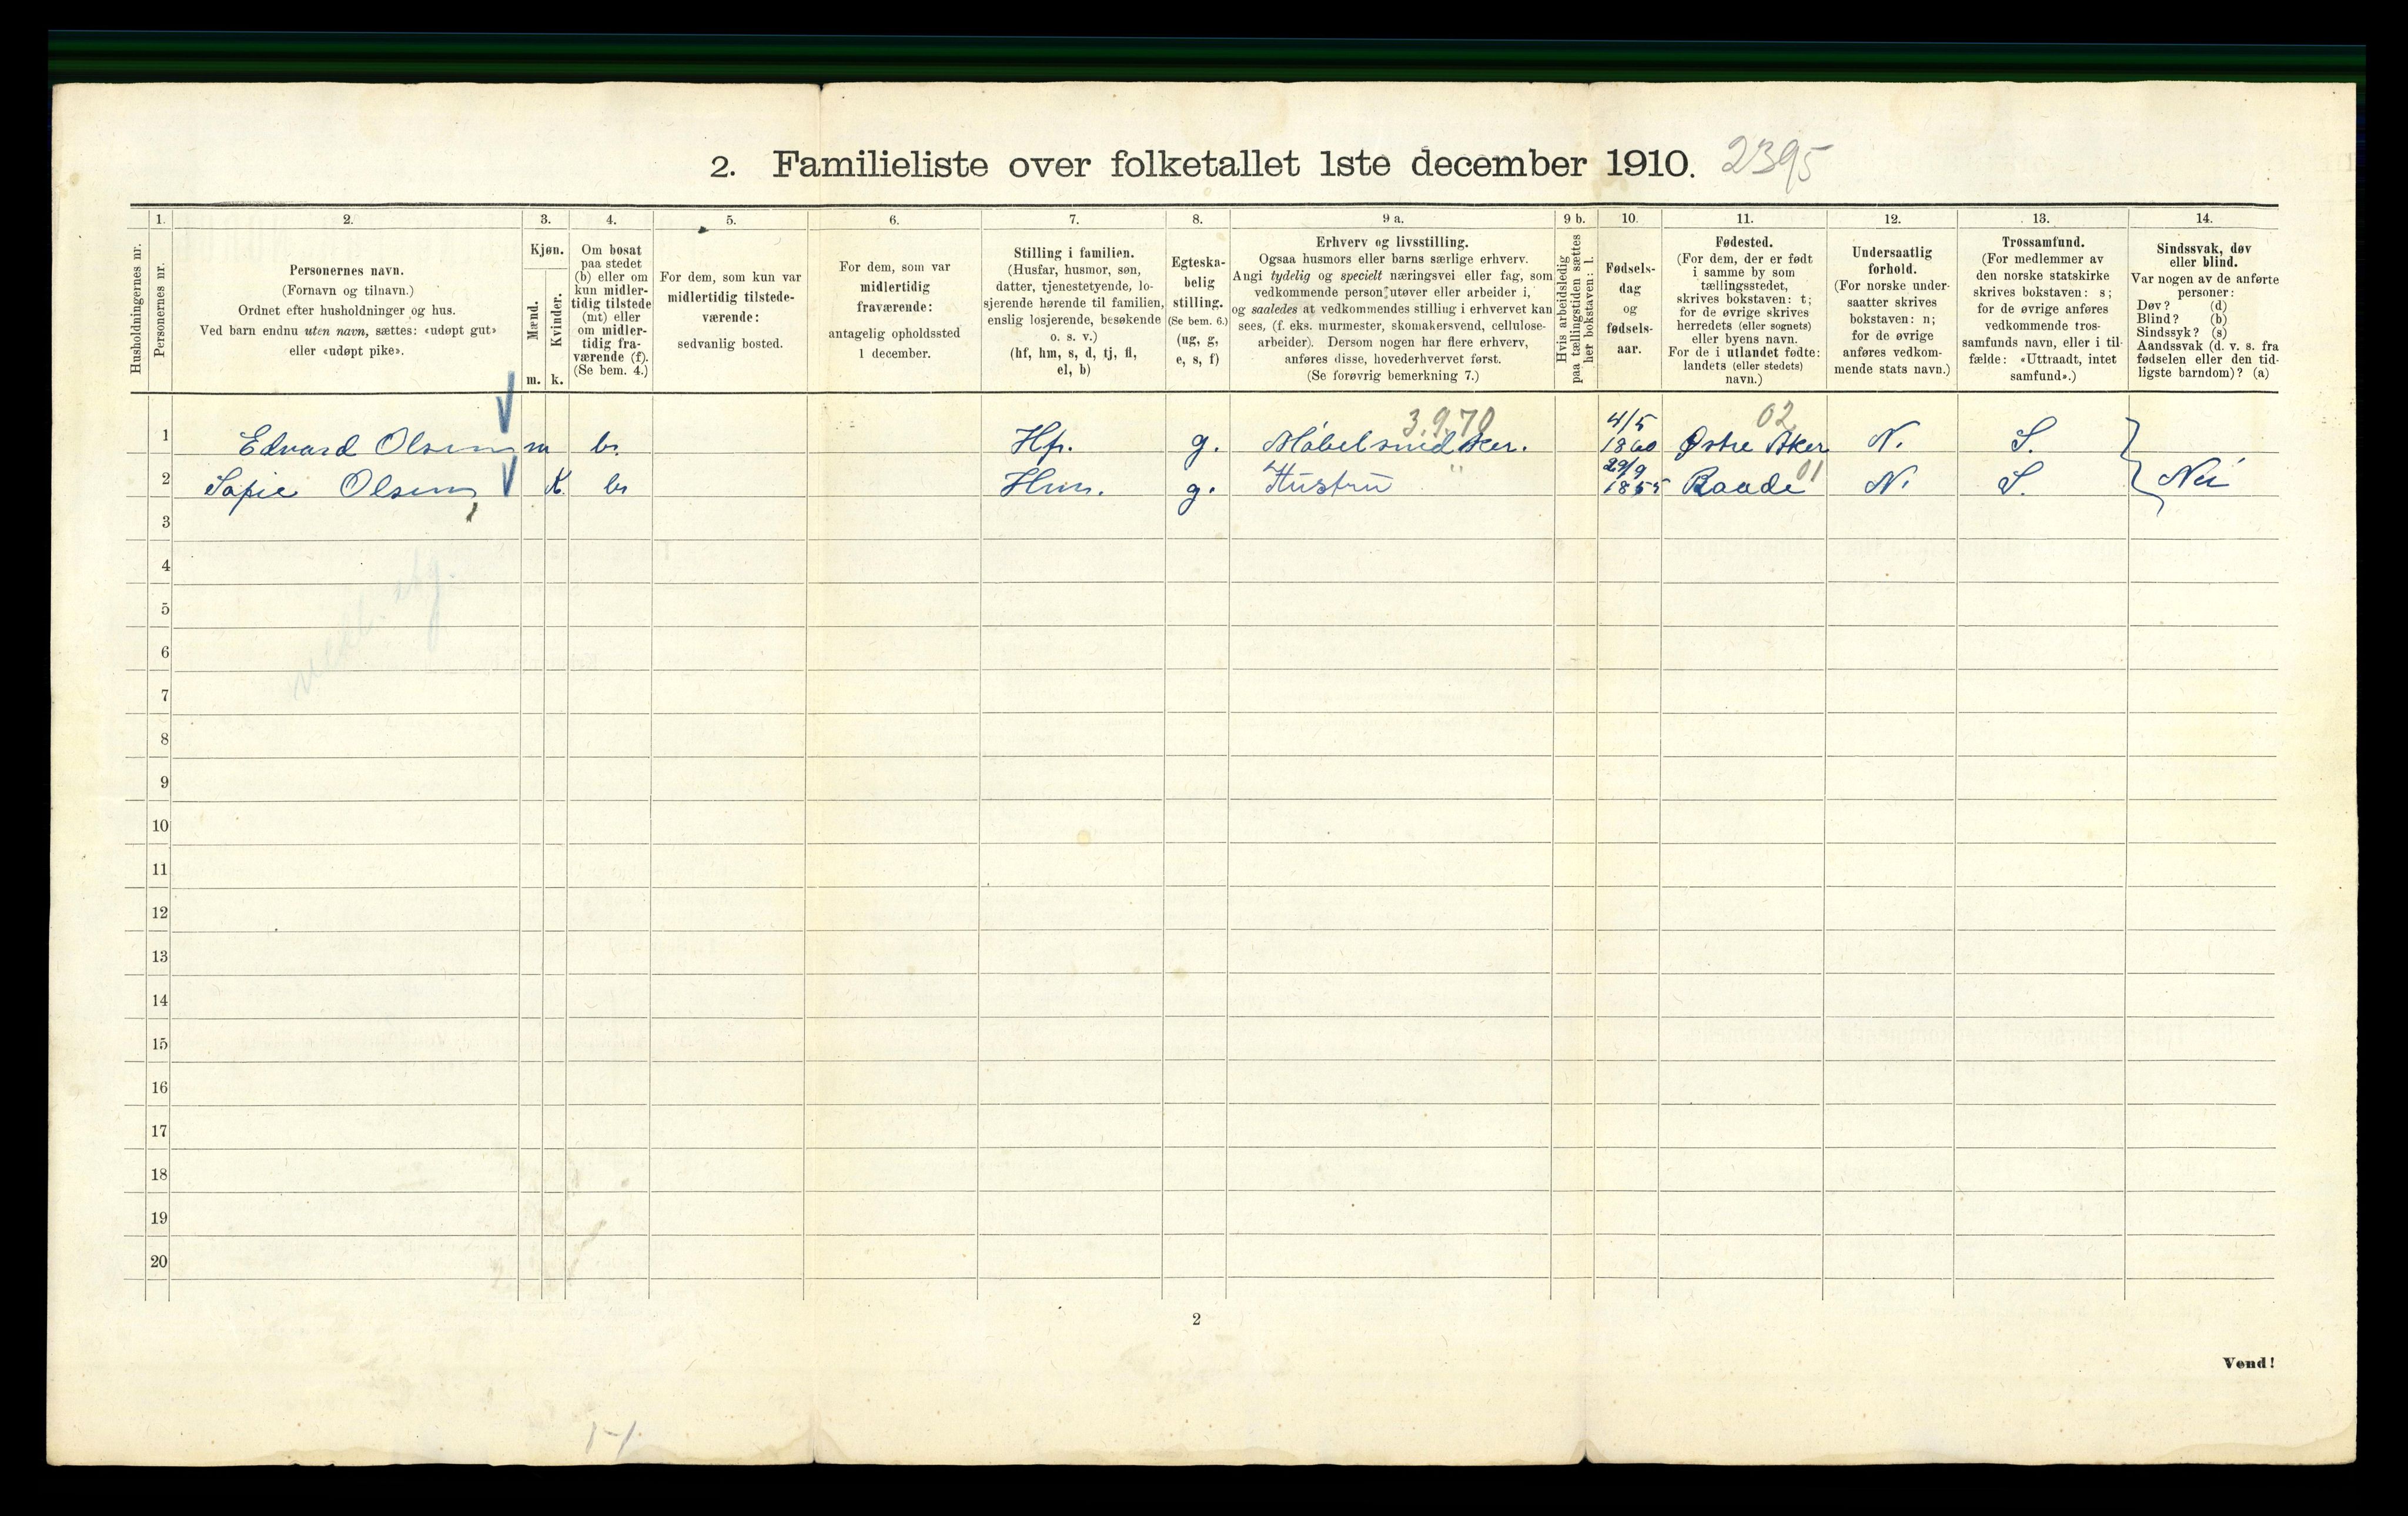 2. Familieliste over folketallet 1ste december 1910. 2395
1. 2. 3. 4. 5. 6. 7. 8. 9 a. 9 b. 10. 11. 12. 13. 14.
Husholdningernes nr.
Personernes nr.
Personernes navn.
(Fornavn og tilnavn.)
Ordnet efter husholdninger og hus.
Ved barn endnu uten navn, sættes: «udøpt gut»
eller «udøpt pike».
Kjøn.
Mænd.
Kvinder.
m. k.
Om bosat
paa stedet
(b) eller om
kun midler-
tidig tilstede
(mt) eller
om midler-
tidig fra-
værende (f).
(Se bem. 4.)
For dem, som kun var
midlertidig tilstede-
værende:
sedvanlig bosted.
For dem, som var
midlertidig
fraværende:
antagelig opholdssted
1 december.
Stilling i familien.
(Husfar, husmor, søn,
datter, tjenestetyende, lo-
sjerende hørende til familien,
enslig losjerende, besøkende
o. s. v.)
(hf, hm, s, d, tj, fl,
el, b)
Egteska-
belig
stilling.
(Se bem. 6.)
(ug, g,
e, s, f)
Erhverv og livsstilling.
Ogsaa husmors eller barns særlige erhverv.
Angi tydelig og specielt næringsvei eller fag, som
vedkommende person utøver eller arbeider i,
og saaledes at vedkommendes stilling i erhvervet kan
sees, (f. eks. murmester, skomakersvend, cellulose-
arbeider). Dersom nogen har flere erhverv,
anføres disse, hovederhvervet først.
(Se forøvrig bemerkning 7.)
Hvis arbeidsledig
paa tællingstiden sættes
her bokstaven: l.
Fødsels-
dag
og
fødsels-
aar.
Fødested.
(For dem, der er født
i samme by som
tællingsstedet,
skrives bokstaven: t;
for de øvrige skrives
herredets (eller sognets)
eller byens navn.
For de i utlandet fødte:
landets (eller stedets)
navn.)
Undersaatlig
forhold.
(For norske under-
saatter skrives
bokstaven: n;
for de øvrige
anføres vedkom-
mende stats navn.)
Trossamfund.
(For medlemmer av
den norske statskirke
skrives bokstaven: s;
for de øvrige anføres
vedkommende tros-
samfunds navn, eller i til-
fælde: «Uttraadt, intet
samfund».)
Sindssvak, døv
eller blind.
Var nogen av de anførte
personer:
Døv? (d)
Blind? (b)
Sindssyk? (s)
Aandssvak (d. v. s. fra
fødselen eller den tid-
ligste barndom)? (a)
3.9.70 4/5 02
1 Edvard Olsen m b. Hf. g. Møbelsnidker. 1860 Østre Aker N. S.
29/9 01
2 Sofie Olsen K. b Hm. g. Hustru " 1855 Raade N. S. Nei
3
4
5
6
7
8
9
10
11
12
13
14
15
16
17
18
19
20
2
Vend!
1-1